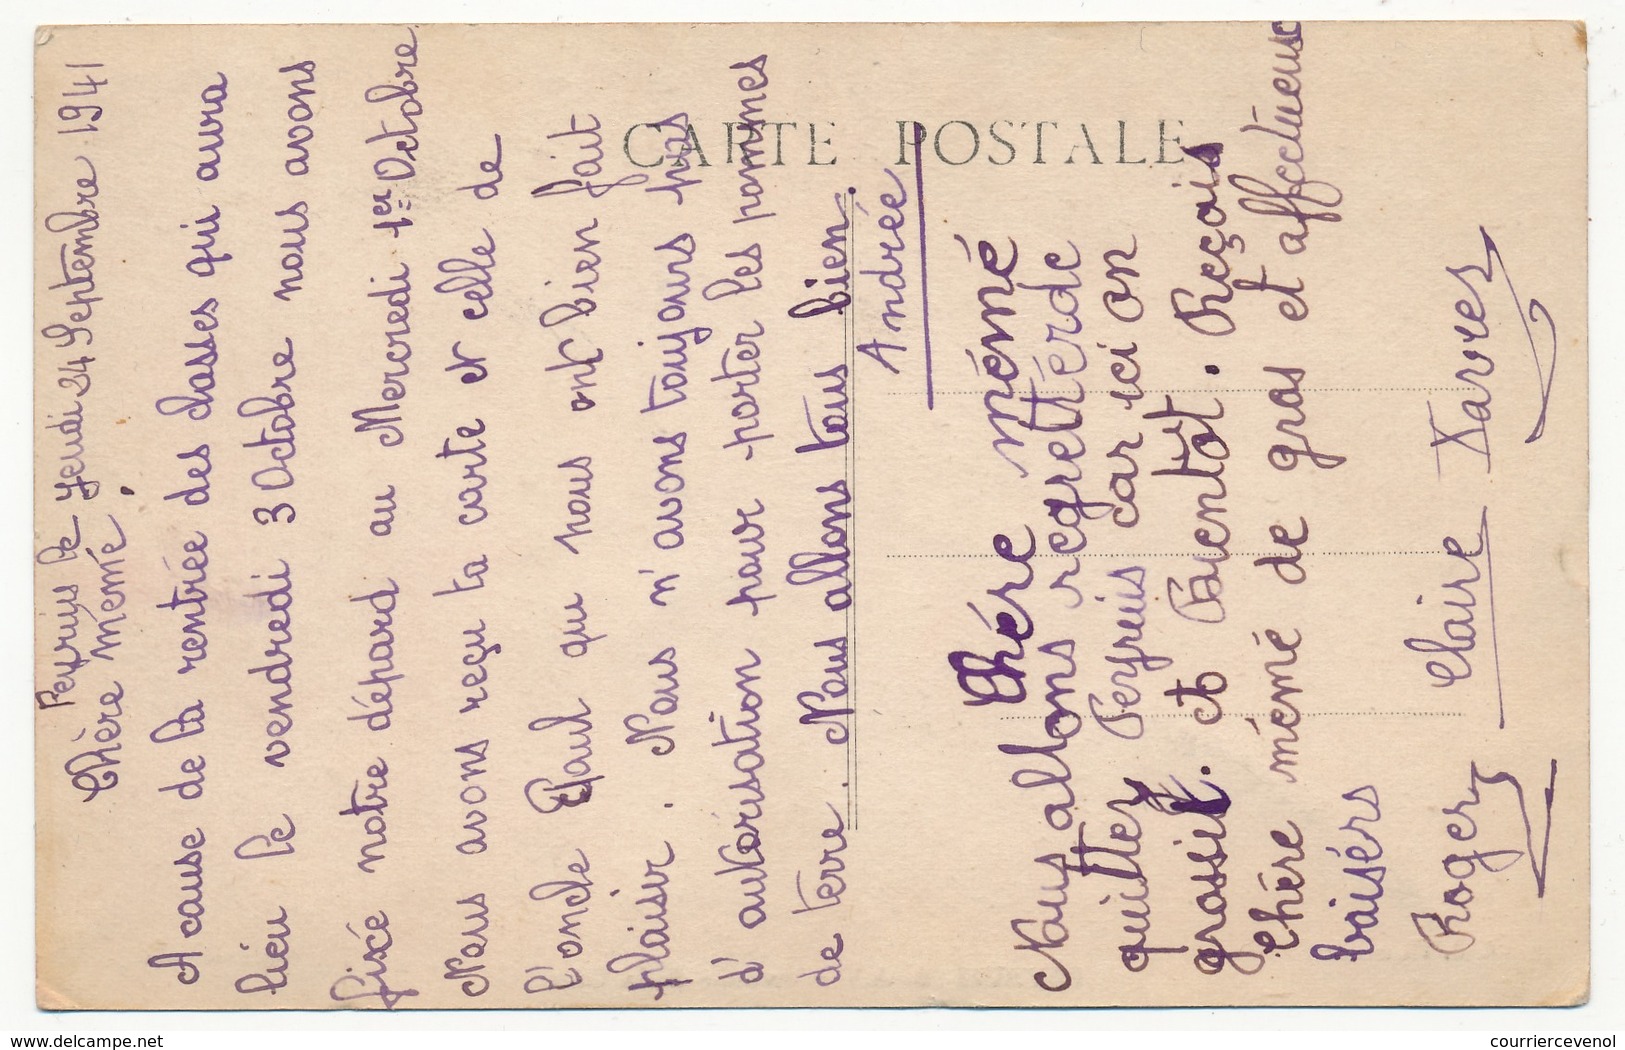 CARTE POSTALE
Peyruis le Jeudi 24 Septembre 1941
Chère mémé.
A cause de la rentrée des classes qui aura
lieu le vendredi 3 Octobre nous avons
fixé notre départ au Mercredi 1er Octobre
Nous avons reçu ta carte et celle de
l'oncle Paul qui nous ont bien fait
plaisir. Nous n'avons toujours pas
d'autorisation pour porter les pommes
de terre. Nous allons tous bien.
Andrée
Chére mémé
Nous allons regrettér de
quitter Peyruis car ici on
grossit. et Bientôt. Reçois
Chére mémé de gros et affectueusc
baisérs
Roger Claire Xavier
courriercevenol